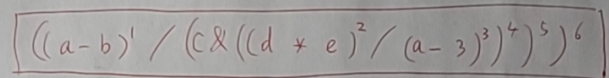 ((a-b)¹ / (c & ((d * e)² / (a-3)³)⁴)⁵)⁶